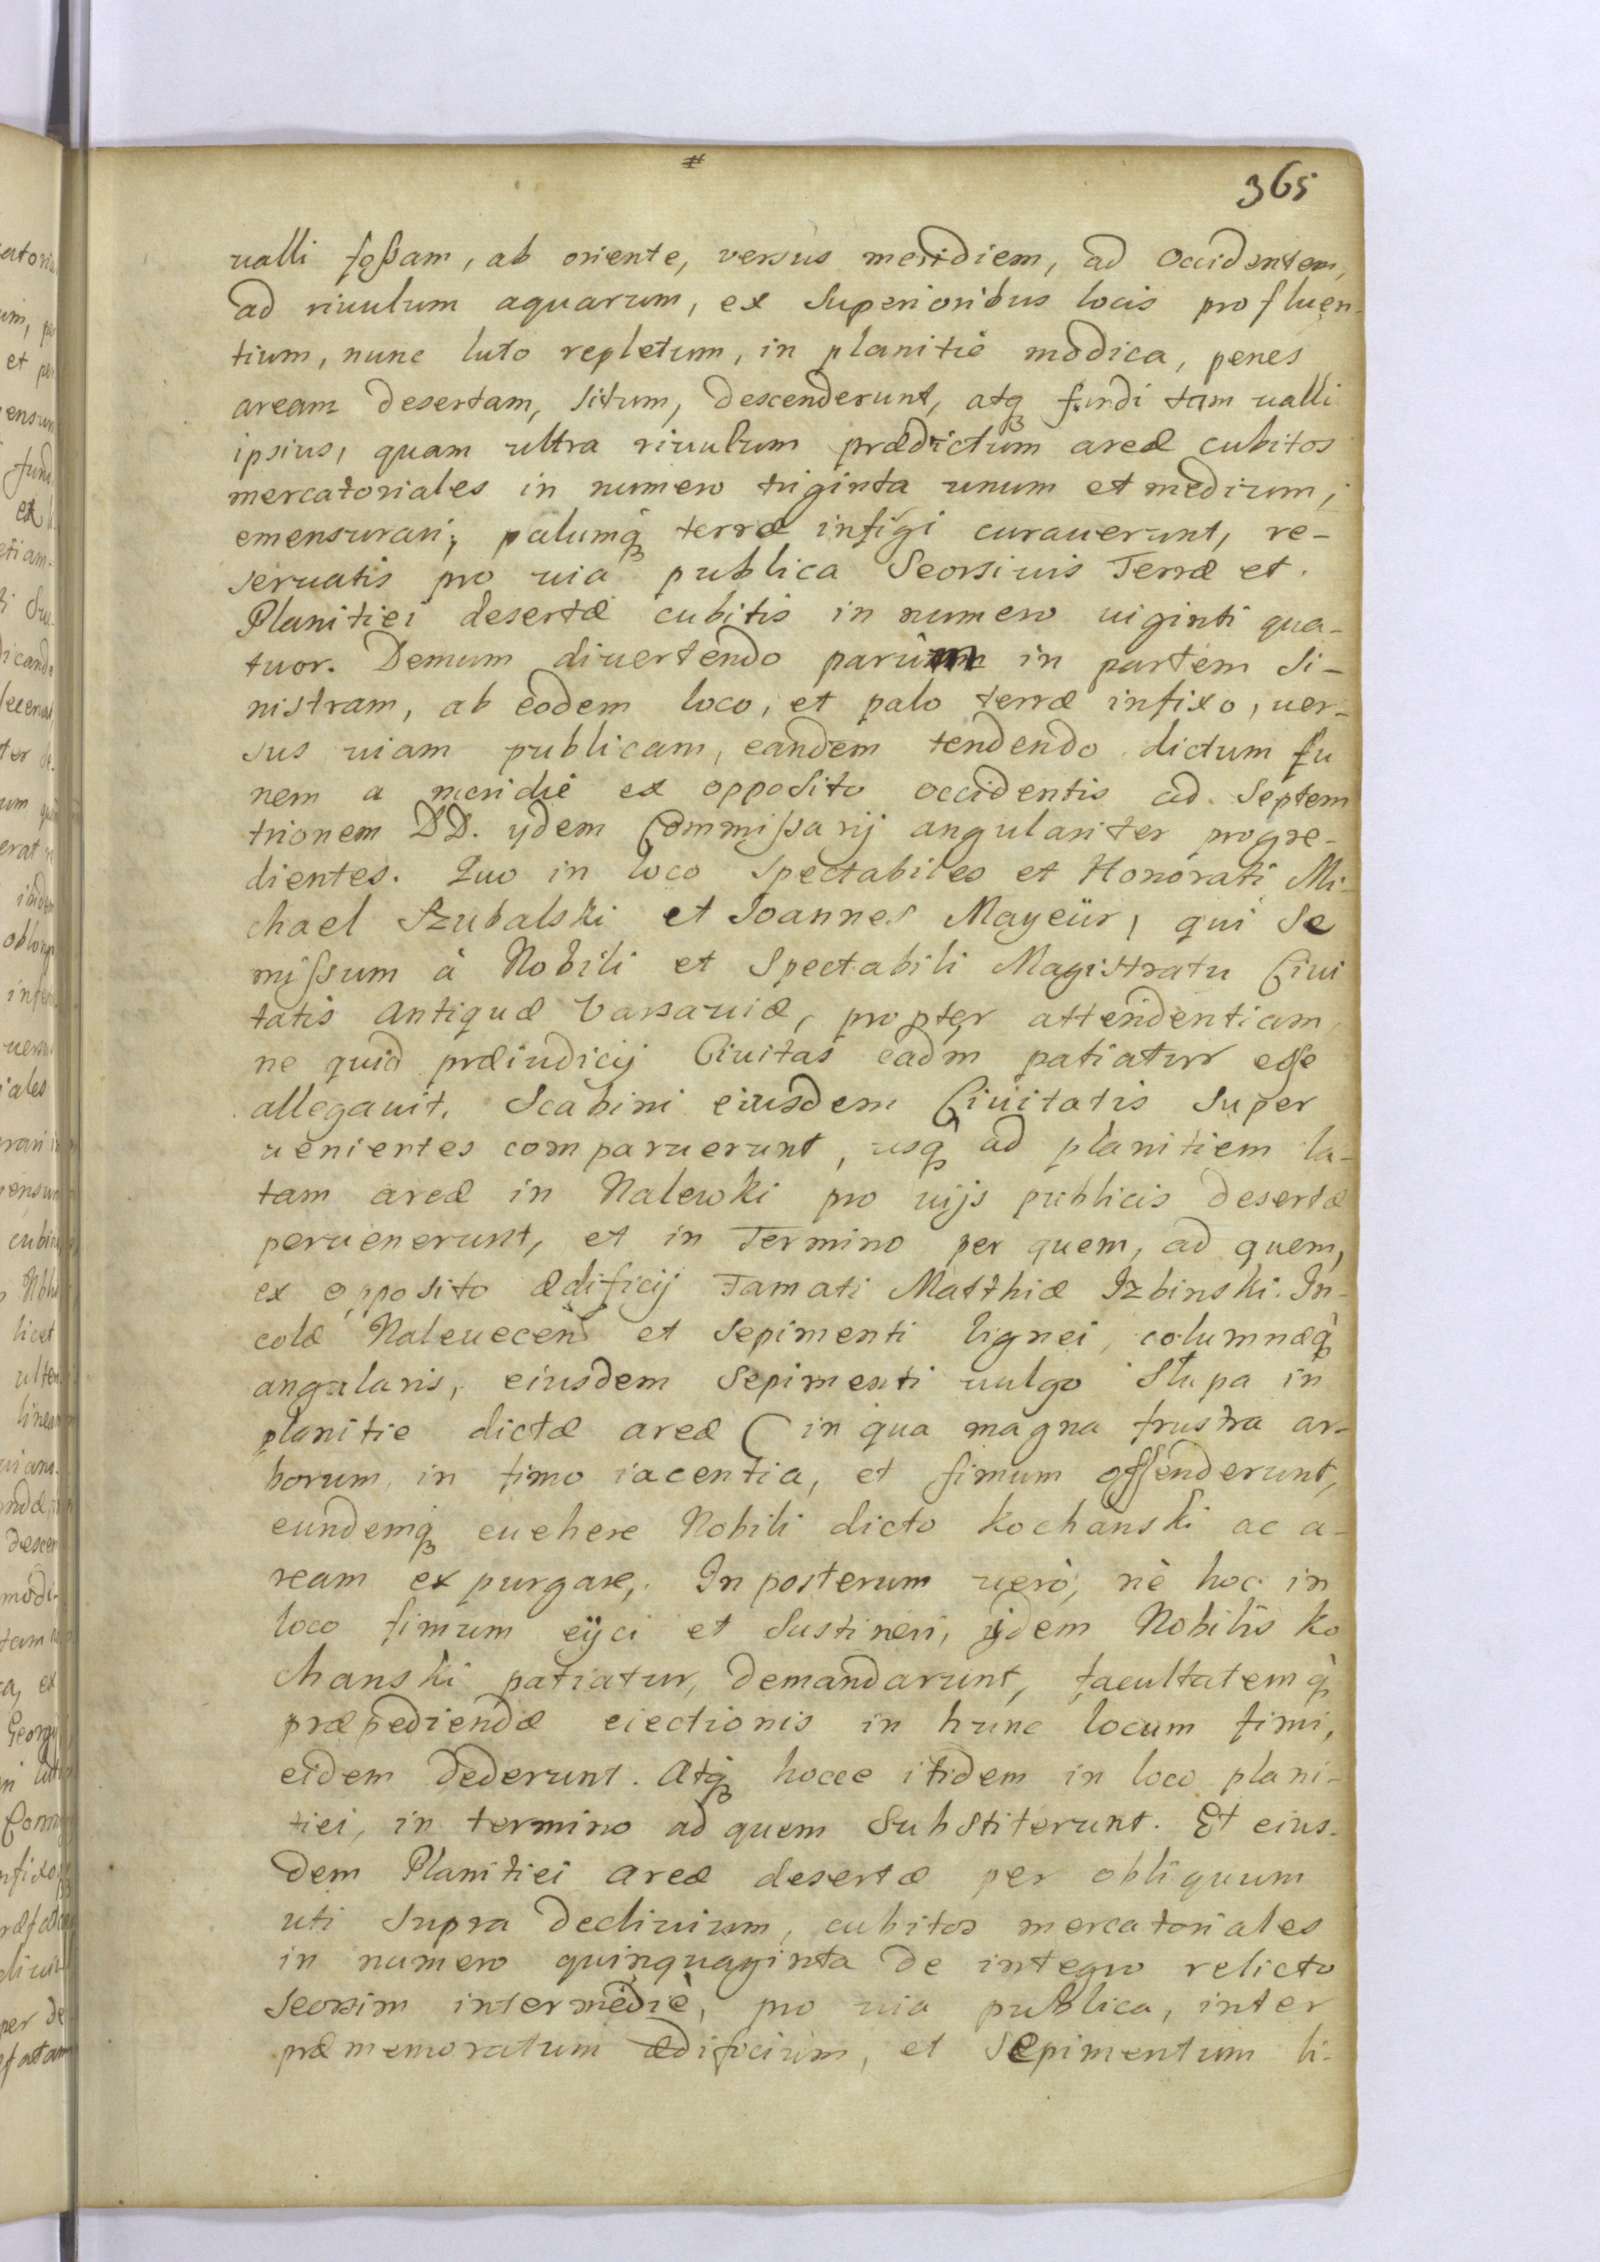 #
365
ualli foßam, ab oriente, versùs meridiem, ad Occidentem,
ad riuulum aquarum, ex Superioribus locis profluen-
tium, nunc luto repletum, in planitiè modica, penes
aream desertam, Situm, descenderunt, atq fundi tam ualli
ipsius, quam ultra riuulum prædictum areæ cubitos
mercatoriales in numero triginta unum et medium,
emensurari, palumq terræ infigi curauerunt, re-
seruatis pro uia publica Seorsiuis Terræ et
Planitiei desertæ cubitis in numero uiginti qua-
tuor. Demum diuertendo parùm in partem Si-
nistram, ab eodem loco, et palo terræ infixo, uer-
sus uiam publicam, eandem tendendo dictum fu
nem a meridiè ex opposito occidentis ad Septem
trionem DD. ydem Commißarij angulariter progre-
dientes. Quo in loco Spectabiles et Honorati Mi-
chael Szubalski et Joannes Mayeür, qui Se
mißum à Nobili et Spectabili Magistratu Ciui
tatis Antiquæ Varsauiæ, propter attendentiam,
ne quid præiudicij Ciuitas eadm patiatur eße
allegauit, Scabini eiusdem Ciuitatis Super
uenientes comparuerunt, usq ad planitiem la-
tam areæ in Nalewki pro uijs publicis desertæ
peruenerunt, et in Termino per quem, ad quem,
ex opposito ædificij Famati Matthiæ Izbinski. In-
colæ Naleuecens et Sepimenti lignei, columnæq
angularis, eiusdem Sepimenti uulgo Słupa in
planitie dictæ areæ ( in qua magna frustra ar-
borum, in fimo iacentia, et fimum offenderunt,
eundemq euehere Nobili dicto Kochanski ac a-
ream expurgare, In posterum uerò, nè hoc in
loco fimum eÿci et Sustineri, ydem Nobilis Ko
chanski patiatur, demandarunt, facultatemq
præpediendæ eiectionis in hunc locum fimi,
eidem dederunt. Atq hocce itidem in loco plani-
tiei, in termino ad quem Substiterunt. Et eius-
dem Planitiei areæ desertæ per obliquum
uti Supra decliuium, cubitos mercatoriales
in numero quinquaginta de integro relicto
Seorsim intermediè, pro uia publica, inter
præmemoratum ædificium, et Sepimentum li-